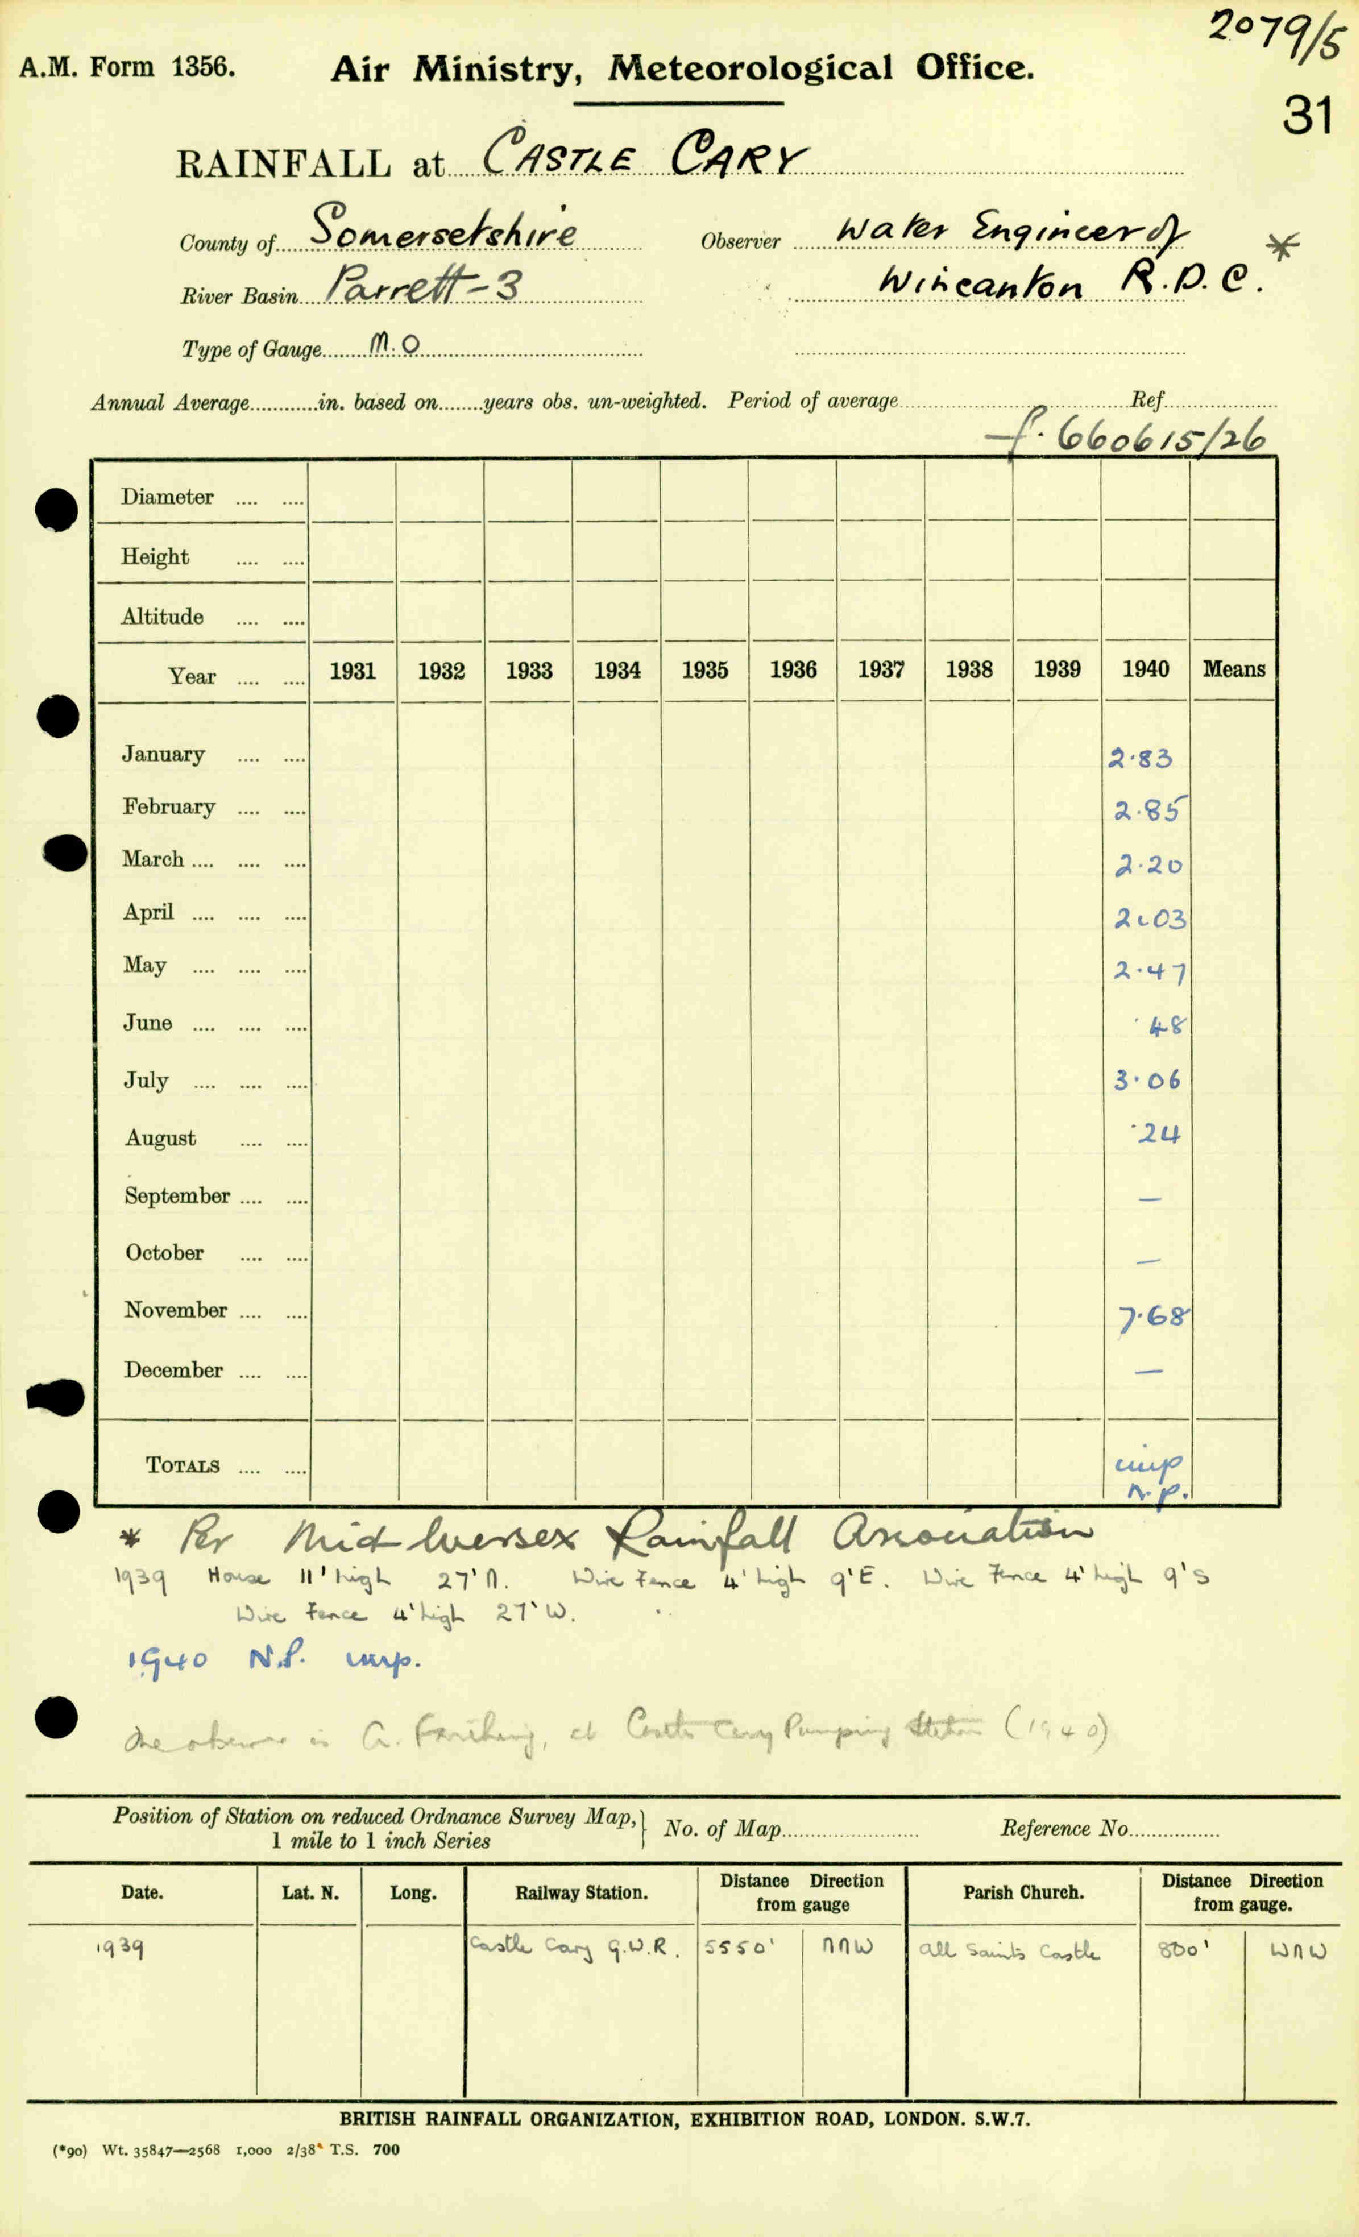 2079/5
A.M. Form 1356. Air Ministry, Meteorological Office.
31
RAINFALL at CASTLE CARY
County of Somersetshire Observer Water Engineer of *
River Basin Parrett-3 Wincanton R.D.C.
Type of Gauge M.O
Annual Average in. based on years obs. un-weighted. Period of average Ref
f. 660615/26
Diameter
Height
Altitude
Year 1931 1932 1933 1934 1935 1936 1937 1938 1939 1940 Means
January 2·83
February 2·85
March 2·20
April 2.03
May 2·47
June ·48
July 3·06
August ·24
September —
October —
November 7·68
December —
TOTALS imp
n.p.
* Per Mid-Wessex Rainfall Association
1939 House 11' high 27' N. Wire Fence 4' high 9' E. Wire Fence 4' high 9' S
Wire Fence 4' high 27' W.
1940 N.P. imp.
The observer is A. Farthing, at Castle Cary Pumping Station (1940)
Position of Station on reduced Ordnance Survey Map,} No. of Map Reference No.
1 mile to 1 inch Series
Date. Lat. N. Long. Railway Station. Distance Direction from gauge Parish Church. Distance Direction from gauge.
1939 Castle Cary G.W.R. 5550' NNW All Saints Castle 800' WNW
BRITISH RAINFALL ORGANIZATION, EXHIBITION ROAD, LONDON. S.W.7.
(*90) Wt. 35847—2568 1,000 2/38 T.S. 700